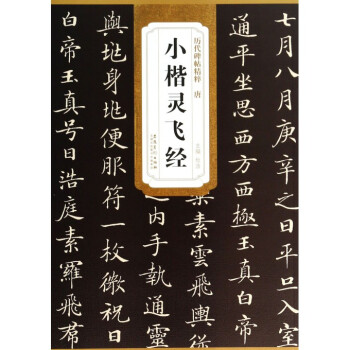 七月八月庚辛之日平旦入室
通平坐思西方西極玉真白帝
历代碑帖精粹 唐
小楷灵飞经
素雲飛輿從
之内手執通靈
與地身地便服符一枚微祝曰
白帝玉真号曰浩庭素羅飛羣